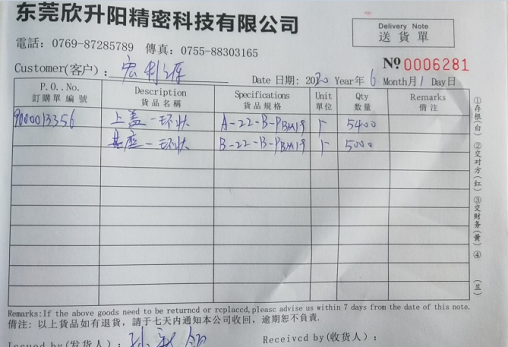 东莞欣升阳精密科技有限公司
電話：0769-87285789 傳真：0755-88303165
Delivery Note
送貨單
Nº 0006281
Customer(客户)：宏利
Date 日期：2020 Year年 6 Month月 1 Day日
P.O. No. Description Specifications Unit Qty Remarks
訂購單編號 貨品名稱 貨品規格 單位 數量 備注
9000013356 上盖一环状 A-22-B-PBM19 个 5400
基座一环状 B-22-B-PBM19 个 5000
①存根(白) ②交对方(红) ③交财务(黄) ④
Remarks:If the above goods need to be returned or replaced,please advise us within 7 days from the date of this note.
備注：以上貨品如有退貨，請于七天内通知本公司收回，逾期恕不負責.
Issued by(发货人)：孙
Received by(收货人)：